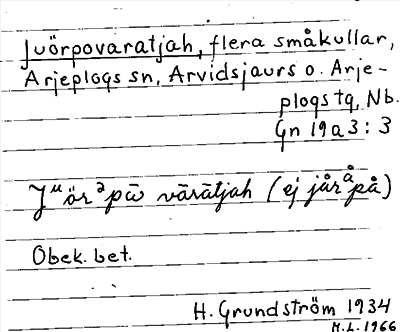 Juörpovaratjah, flera småkullar,
Arjeplogs sn, Arvidsjaurs o. Arje-
plogs tg, Nb.
Gn 19a3:3
Jᵘörᵊpāv vārātjah (ej jårᵃ̊på)
Obek. bet.
H. Grundström 1934
M.L. 1966